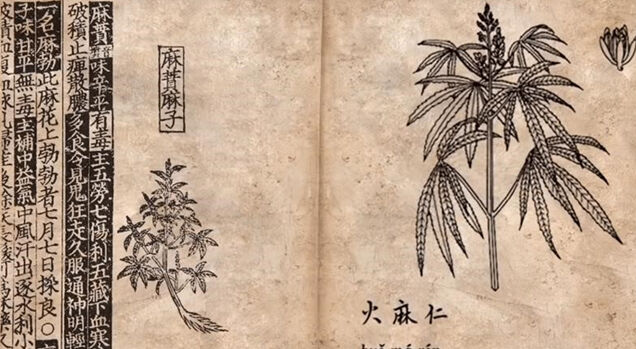 麻蕡麻子
麻蕡味辛平有毒主五勞七傷利五藏下血寒
破積止痺散膿多食令見鬼狂走久服通神明輕
一名麻勃此麻花上勃勃者七月七日採良○
子味甘平無毒主補中益氣中風汗出逐水利小
火麻仁